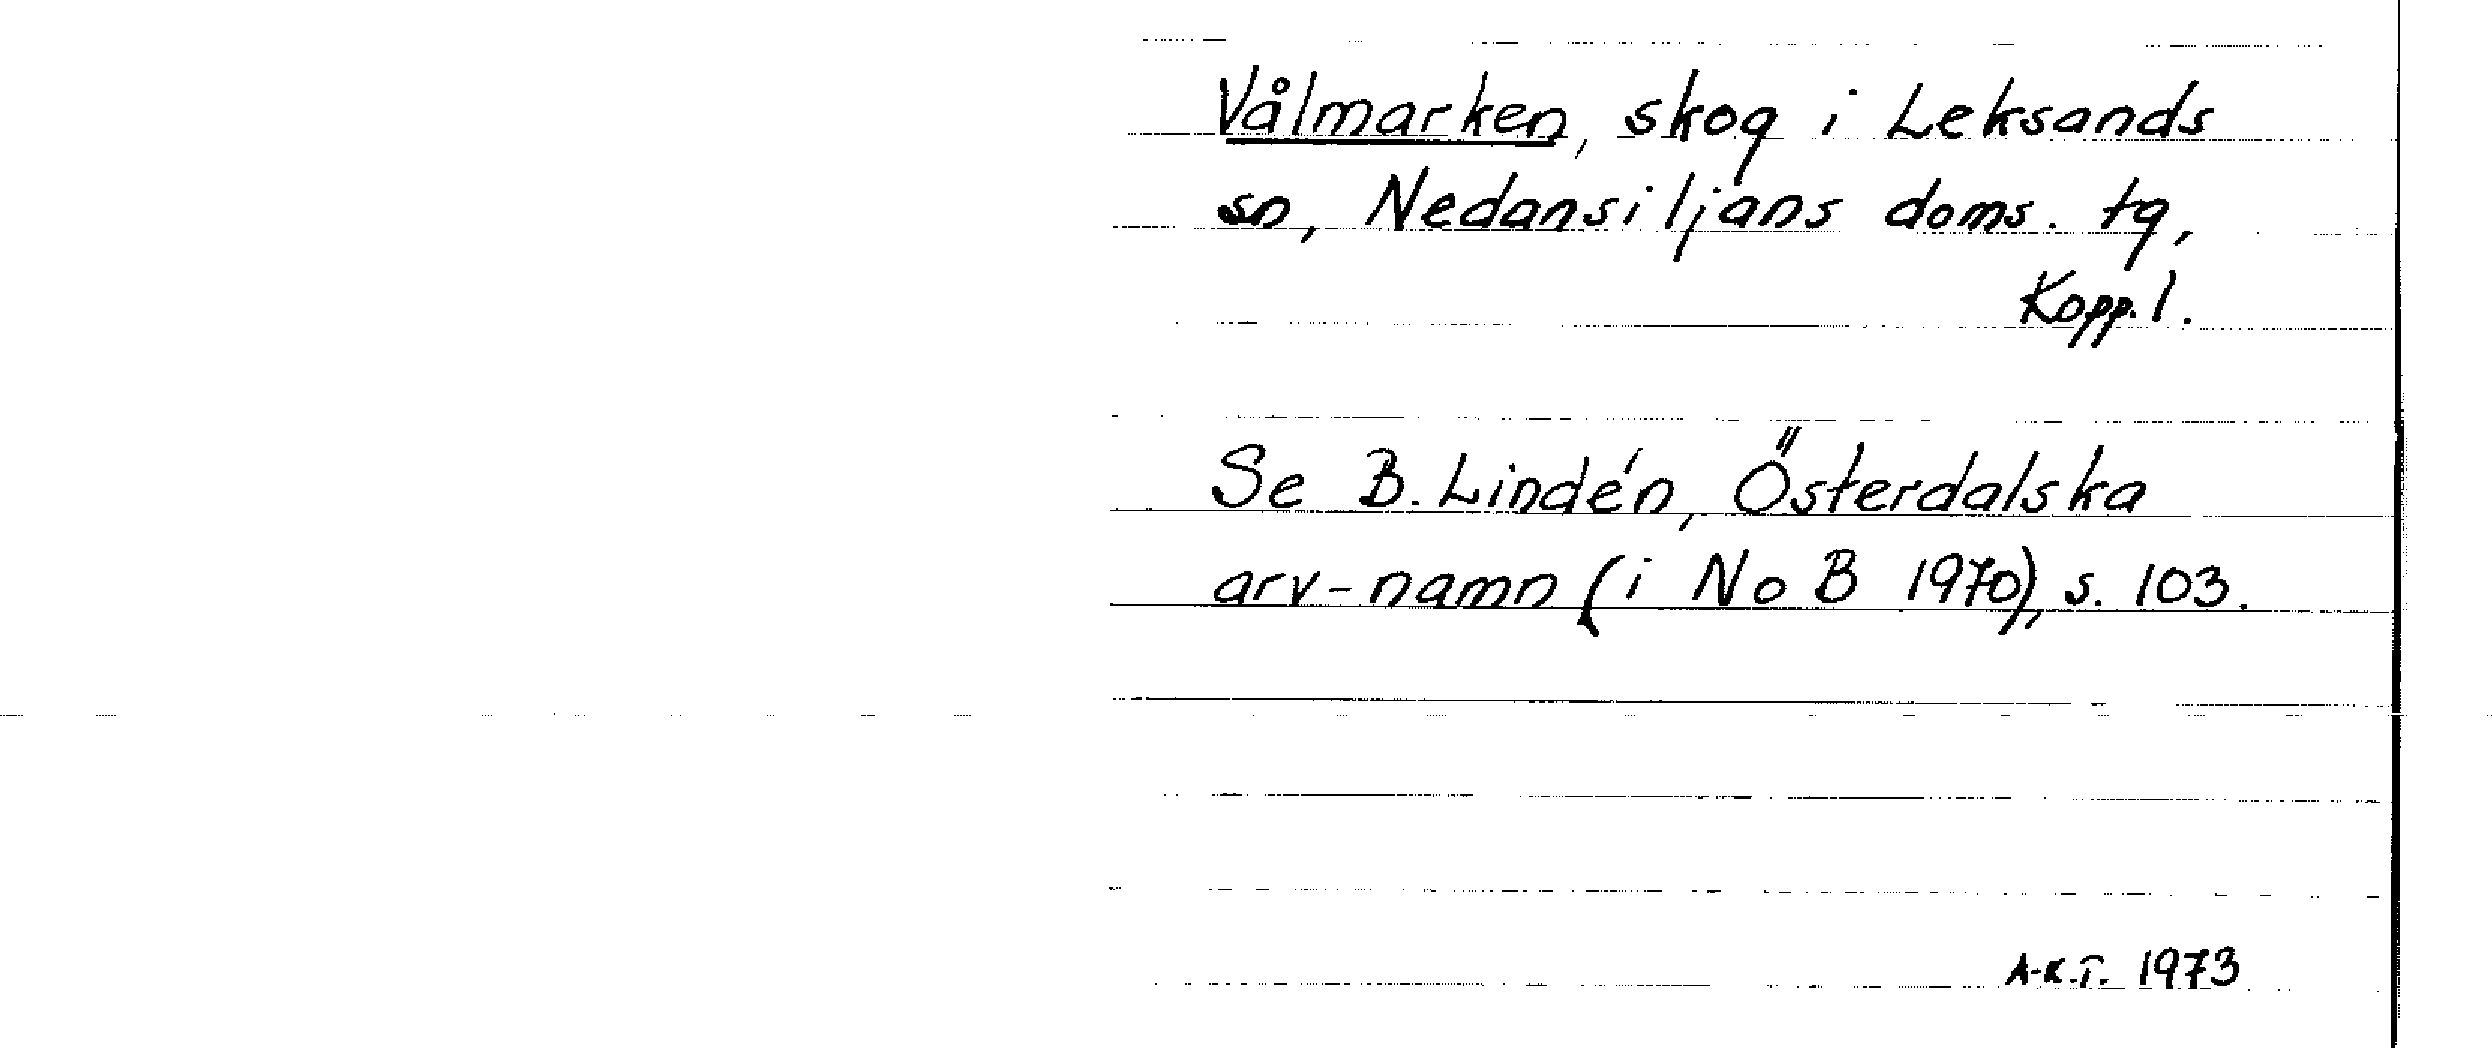 Vålmarken, skog i Leksands
sn, Nedansiljans doms. tg,
Kopp. l.
Se B. Lindén, Österdalska
arv-namn (i NoB 1970), s. 103.
A-K.T. 1973